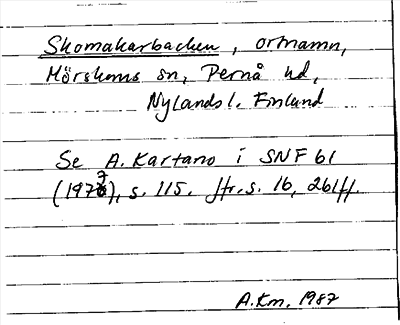 Skomakarbacken, ortnamn,
Mörskoms sn, Pernå hd,
Nylands l. Finland
Se A. Kartano i SNF 61
(1977), s. 115. Jfr. s. 16, 261ff.
A.Km. 1987